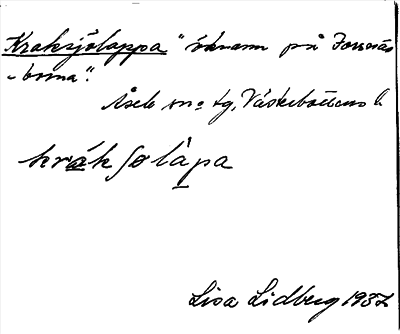 Kraksjölappa "öknamn på Forsnäs
-borna".
Åsele sn o tg, Västerbottens l.
kråk ſølapa
Lisa Lidberg 1932